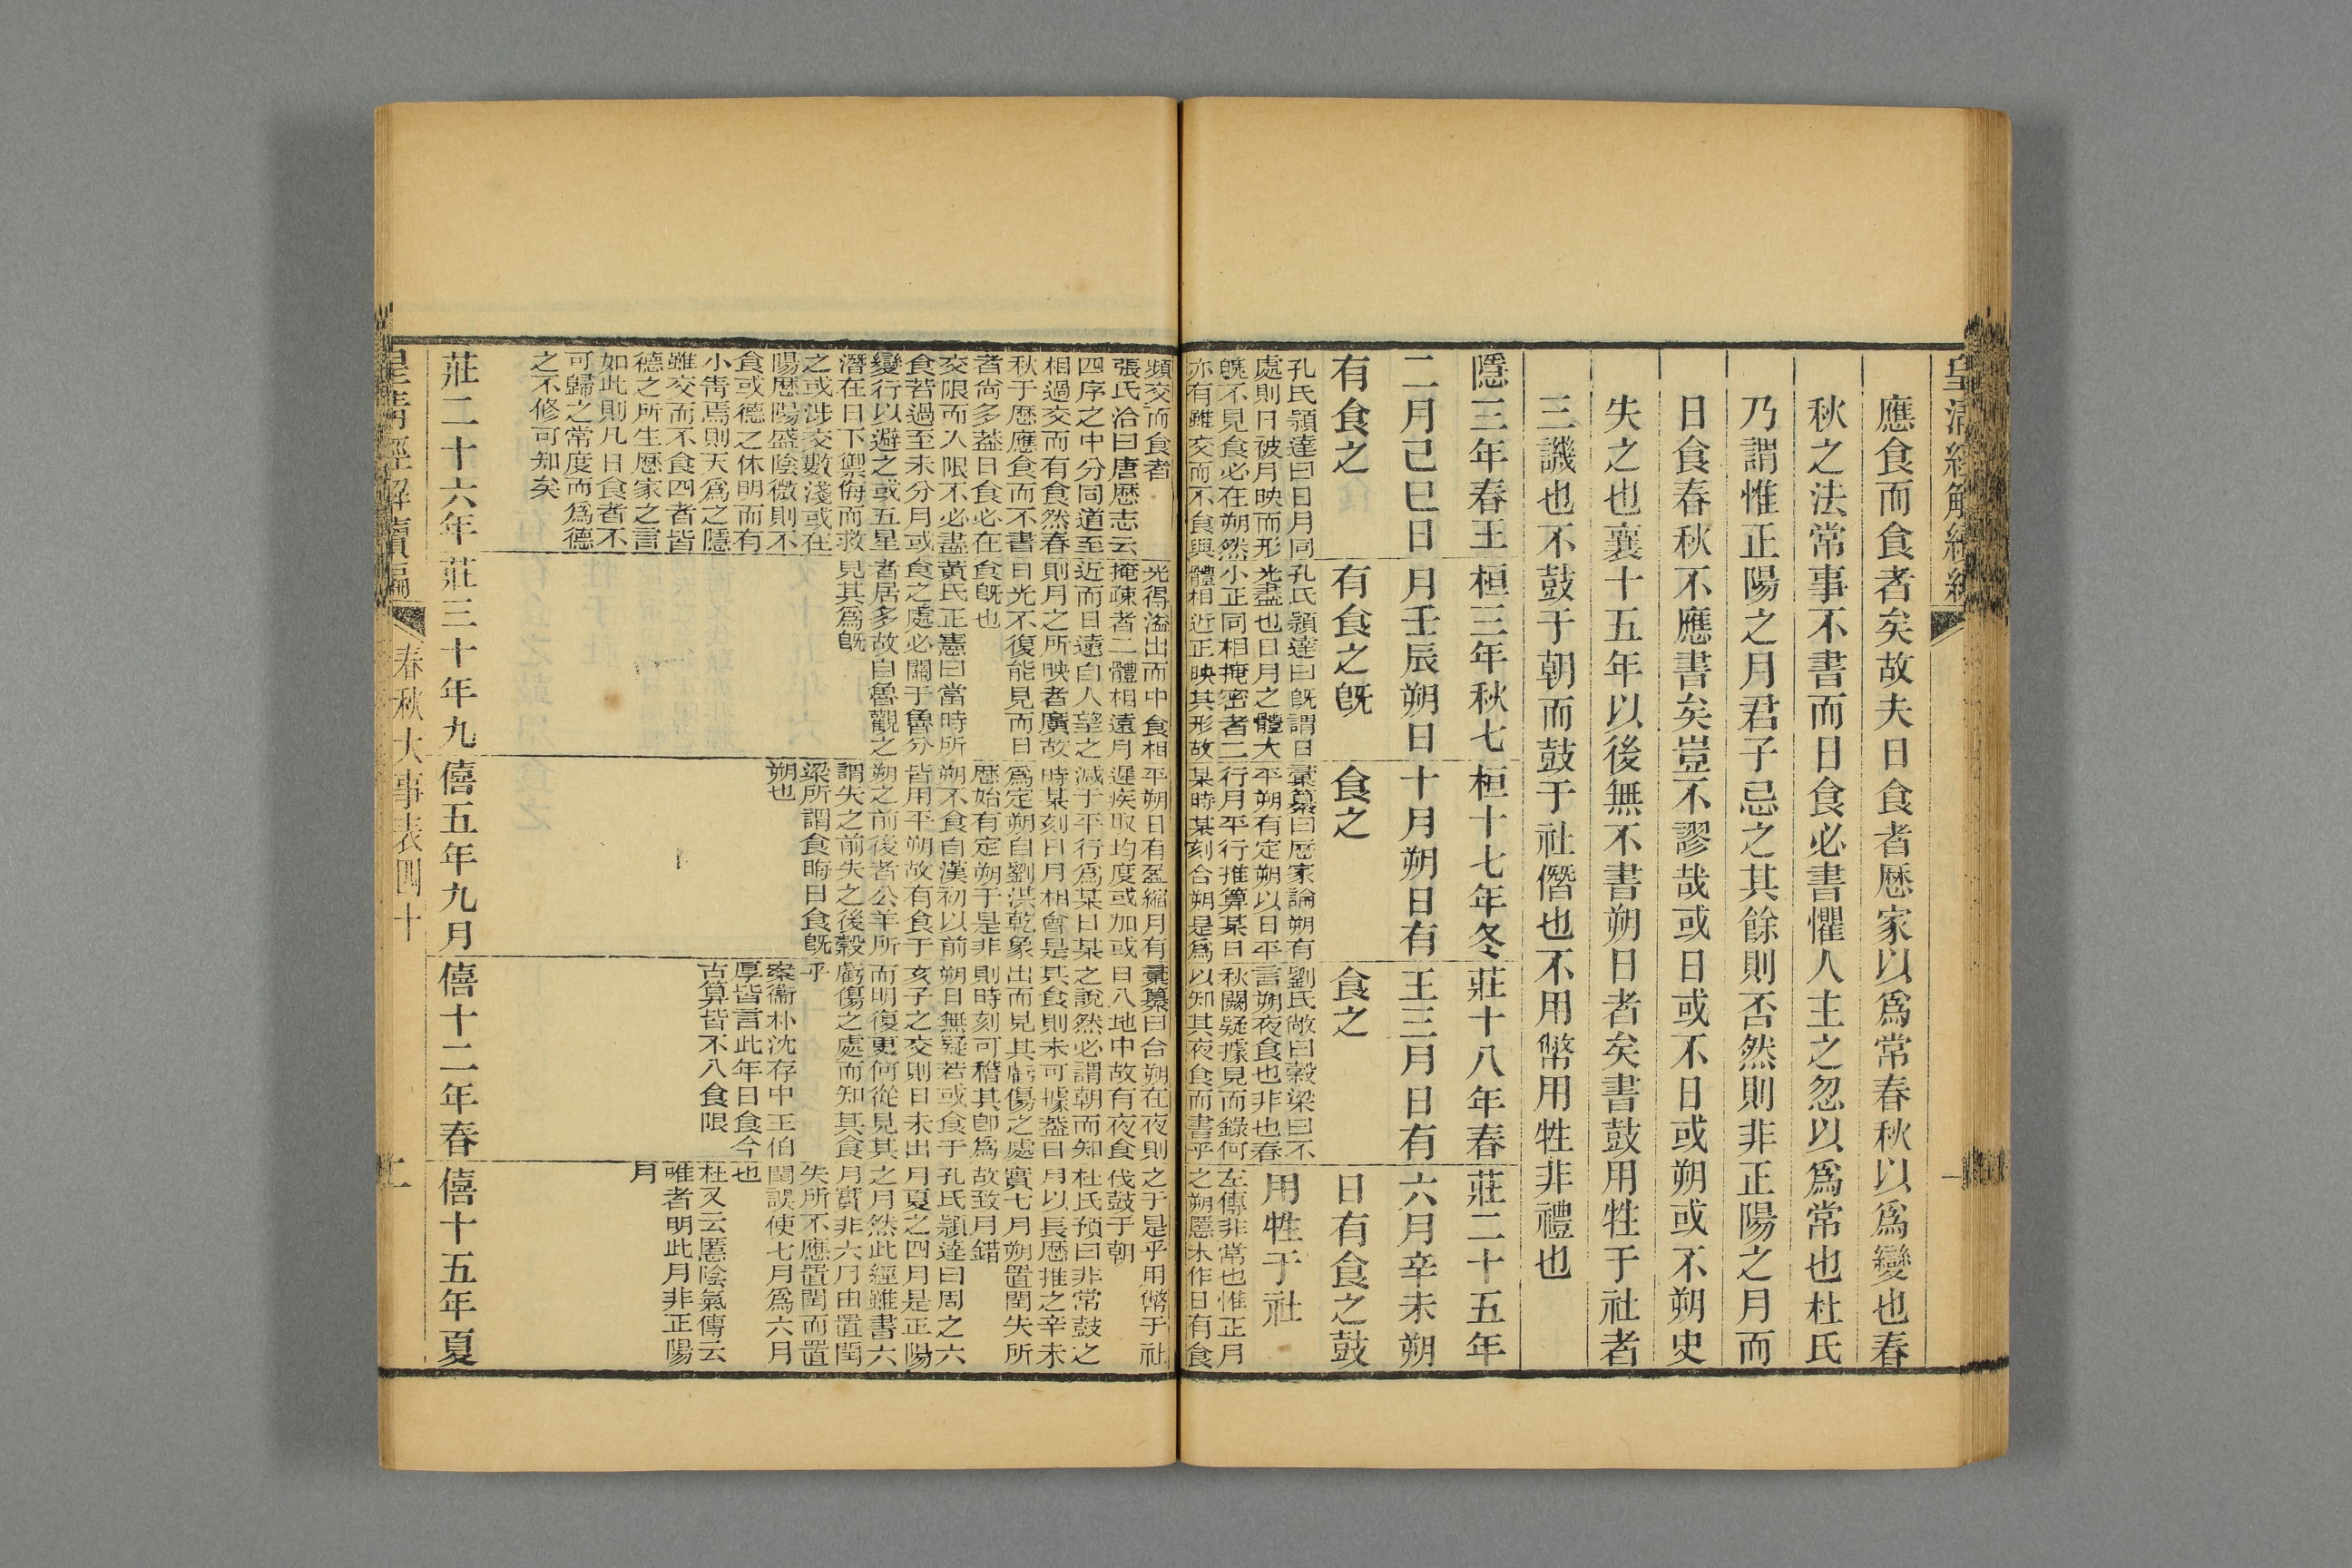 皇清經解續編
應食而食者矣故夫日食者厯家以爲常春秋以爲變也春
秋之法常事不書而日食必書懼人主之忽以爲常也杜氏
乃謂惟正陽之月君子忌之其餘則否然則非正陽之月而
日食春秋不應書矣豈不謬哉或日或不日或朔或不朔史
失之也襄十五年以後無不書朔日者矣書鼓用牲于社者
三譏也不鼓于朝而鼓于社僭也不用幣用牲非禮也
隱三年春王
二月己巳日
有食之
孔氏頴達曰日月同
處則日被月映而形
魄不見食必在朔然
亦有雖交而不食與
頻交而食者
張氏洽曰唐厯志云
四序之中分同道至
相過交而有食然春
秋于厯應食而不書
者尙多葢日食必在
交限而入限不必盡
食若過至未分月或
變行以避之或五星
潛在日下禦侮而救
之或涉交數淺或在
陽厯陽盛陰微則不
食或德之休明而有
小眚焉則天爲之隱
雖交而不食四者皆
德之所生厯家之言
如此則凡日食者不
可歸之常度而爲德
之不修可知矣
桓三年秋七
月壬辰朔日
有食之旣
孔氏頴達曰旣謂日
光盡也日月之體大
小正同相掩密者二
體相近正映其形故
光得溢出而中食相
掩疎者二體相遠月
近而日遠自人望之
則月之所映者廣故
日光不復能見而日
食旣也
黃氏正憲曰當時所
食之處必闗于魯分
者居多故自魯觀之
見其爲旣
桓十七年冬
十月朔日有
食之
彙纂曰厯家論朔有
平朔有定朔以日平
行月平行推算某日
某時某刻合朔是爲
平朔日有盈縮月有
遲疾取均度或加或
減于平行爲某日某
時某刻日月相會是
爲定朔自劉洪乾象
厯始有定朔于是非
朔不食自漢初以前
皆用平朔故有食于
朔之前後者公羊所
謂失之前失之後穀
梁所謂食晦日食旣
朔也
莊十八年春
王三月日有
食之
劉氏敞曰穀梁曰不
言朔夜食也非也春
秋闕疑據見而錄何
以知其夜食而書乎
彙纂曰合朔在夜則
日入地中故有夜食
之說然必謂朝而知
其食則未可據葢日
出而見其虧傷之處
則時刻可稽其卽爲
朔日無疑若或食于
亥子之交則日未出
而明復更何從見其
虧傷之處而知其食
乎
案衞朴沈存中王伯
厚皆言此年日食今
古算皆不入食限
莊二十五年
六月辛未朔
日有食之鼓
用牲于社
左傳非常也惟正月
之朔慝未作日有食
之于是乎用幣于社
伐鼓于朝
杜氏預曰非常鼓之
月以長厯推之辛未
實七月朔置閏失所
故致月錯
孔氏頴達曰周之六
月夏之四月是正陽
之月然此經雖書六
月實非六月由置閏
失所不應置閏而置
閏誤使七月爲六月
也
杜又云慝陰氣傳云
唯者明此月非正陽
月
莊二十六年
莊三十年九
僖五年九月
僖十二年春
僖十五年夏
皇清經解續編
春秋大事表四十